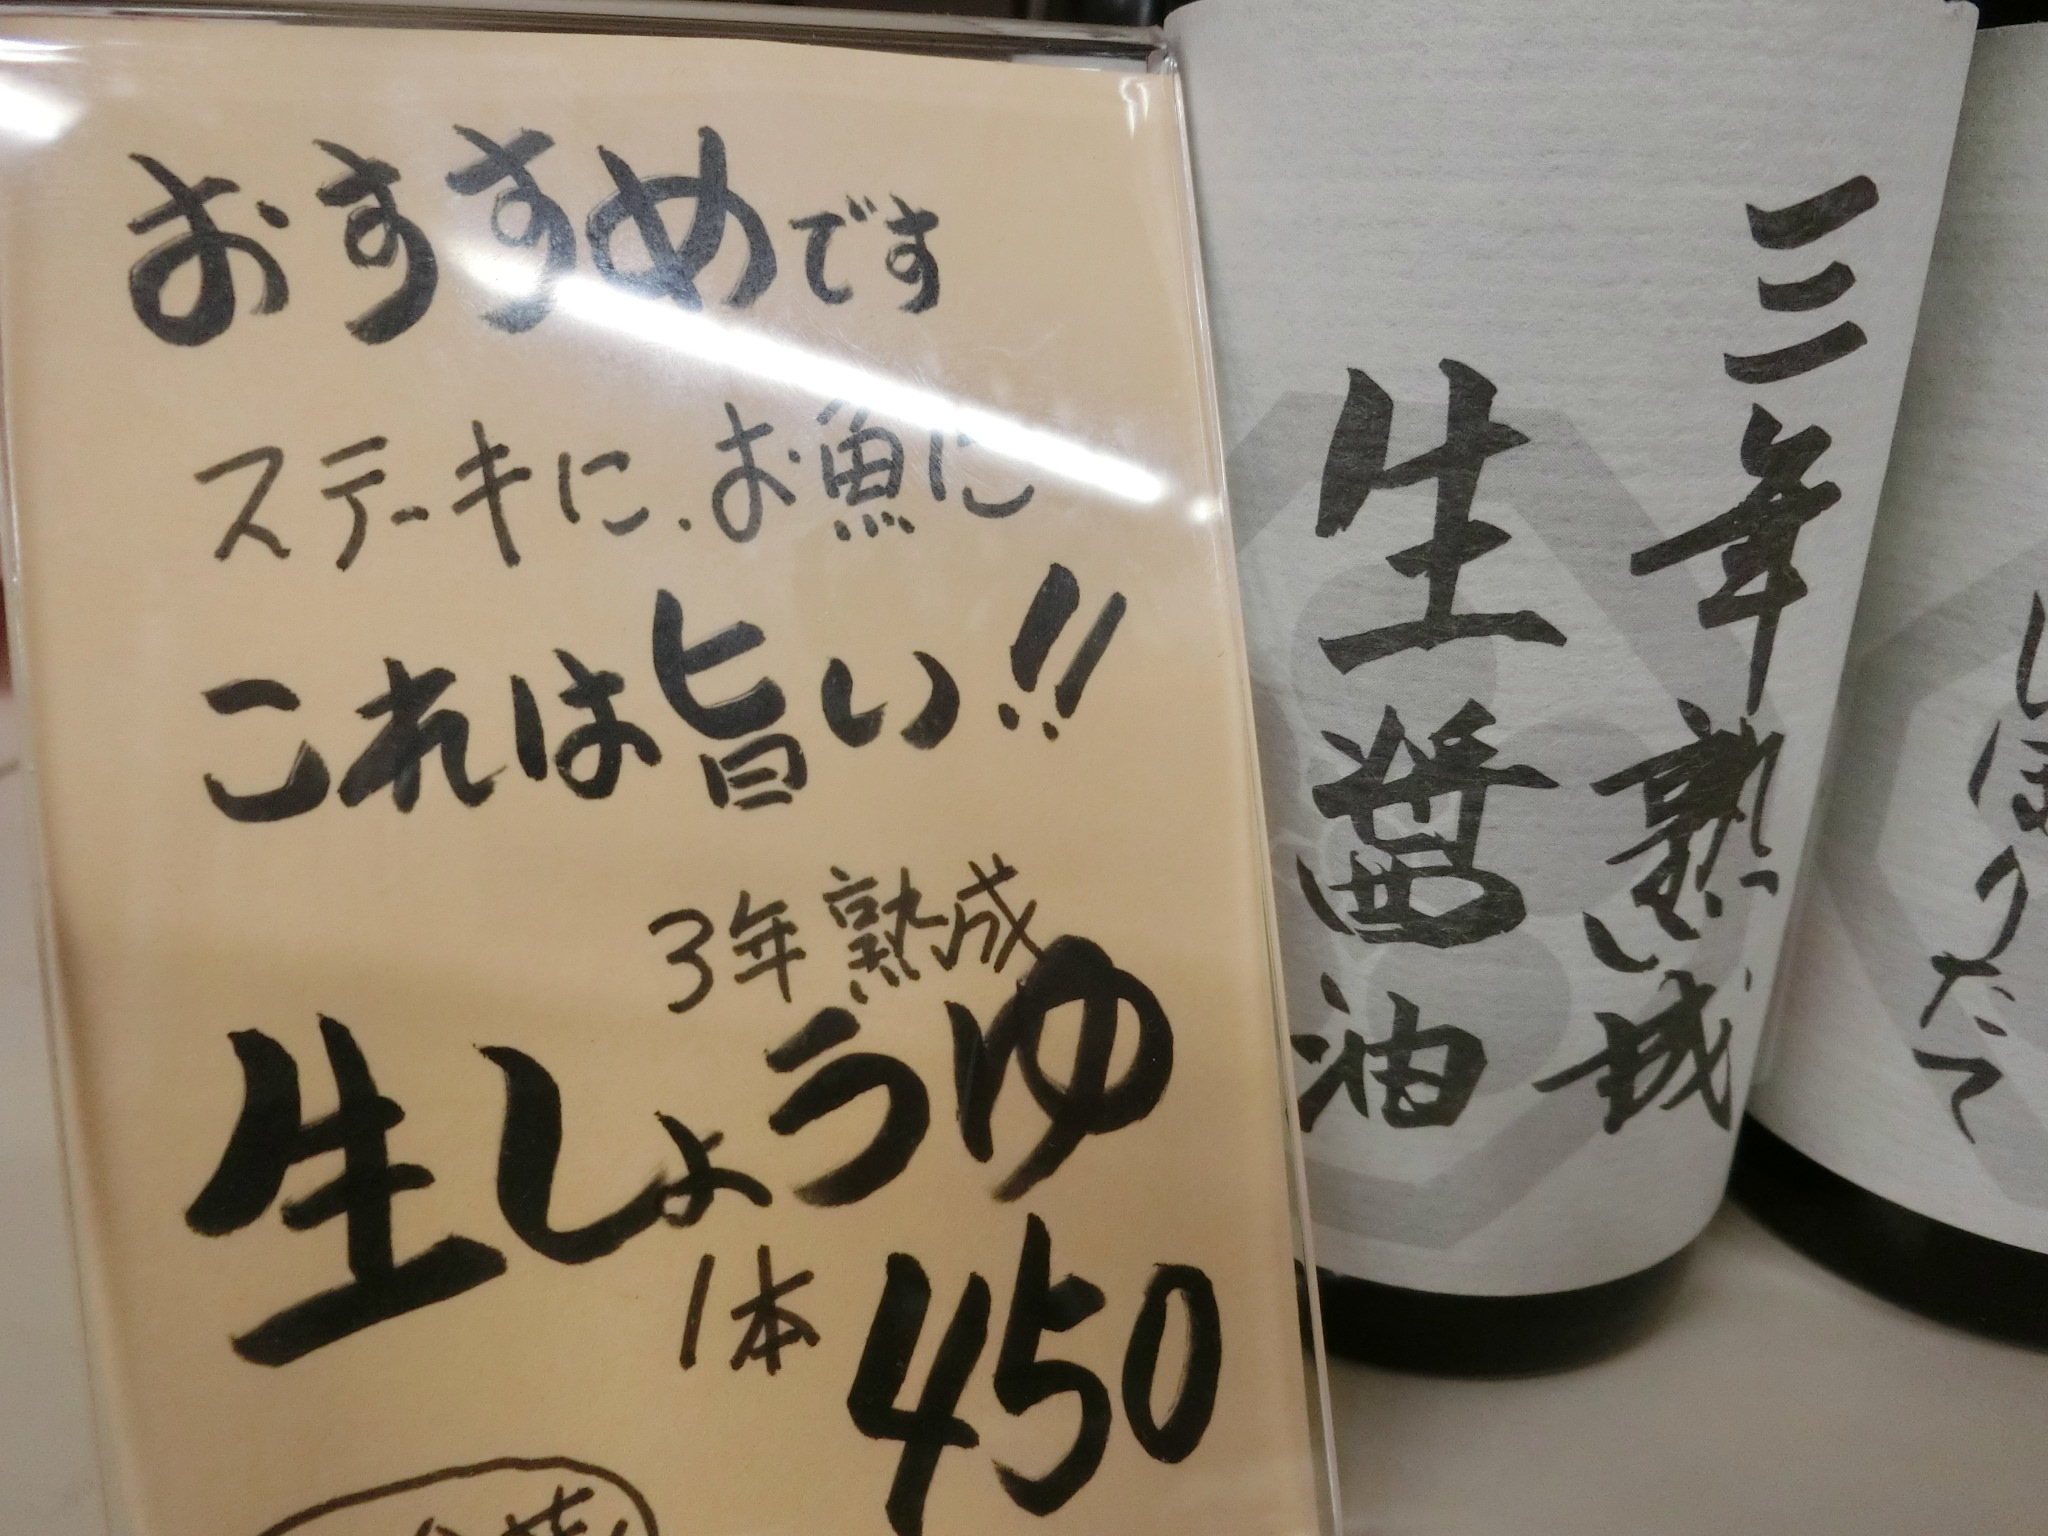 おすすめです
ステーキに、お魚に
これは旨い!!
3年熟成
生しょうゆ
1本 450
三年熟成
生醤油
しぼりたて